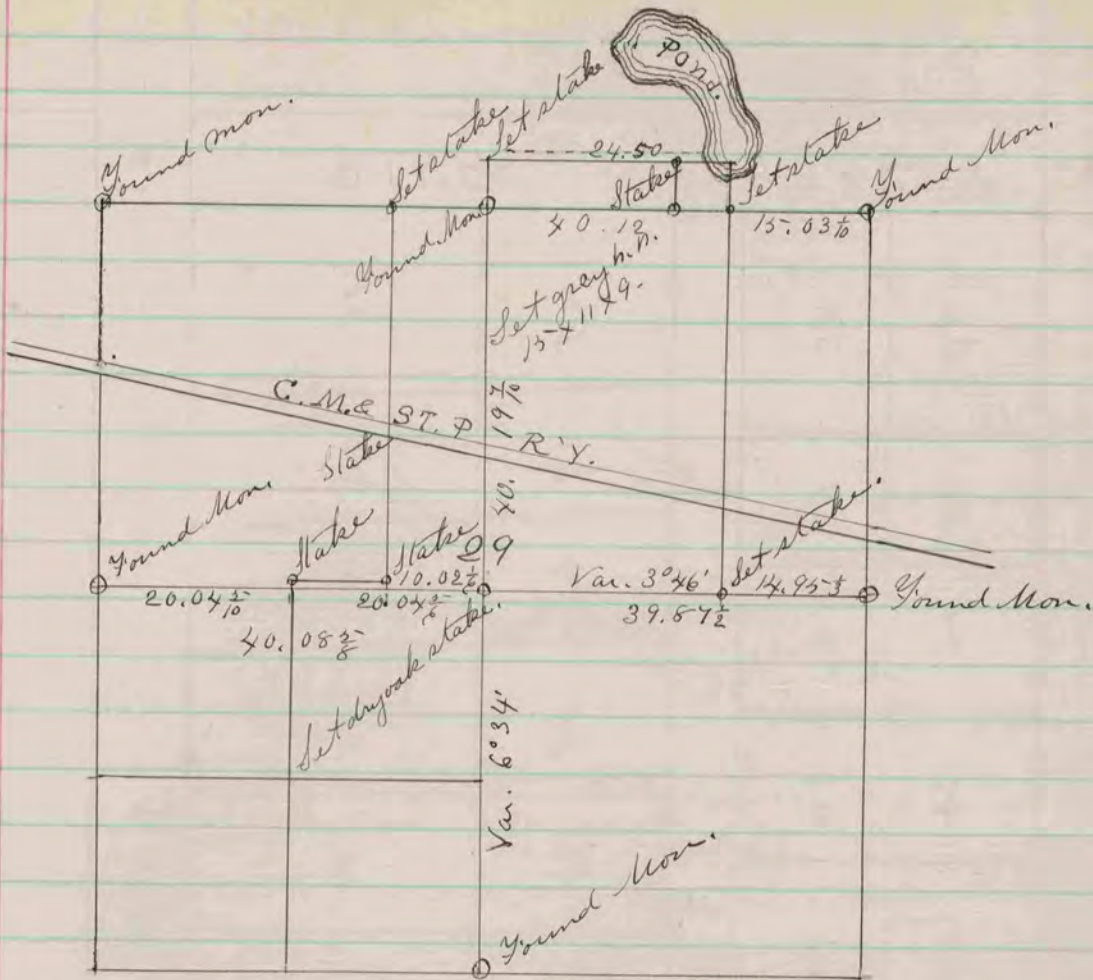 Pond.
Found Mon.
Set stake
Set stake
24.50
Stake
Set stake
Found Mon.
Found Mon.
40.12
15.03 1/10
Set grey h.h.
15 x 11 x 9.
C. M. & ST. P R'Y.
40. 19 7/10
Stake
Found Mon.
Stake
Stake
29
Set stake.
20.04 5/10
20.04 5/6
Var. 3°46'
14.95
Found Mon.
40.08 5/8
39.87 1/2
Set dry oak stake.
Var. 6°34'
Found Mon.